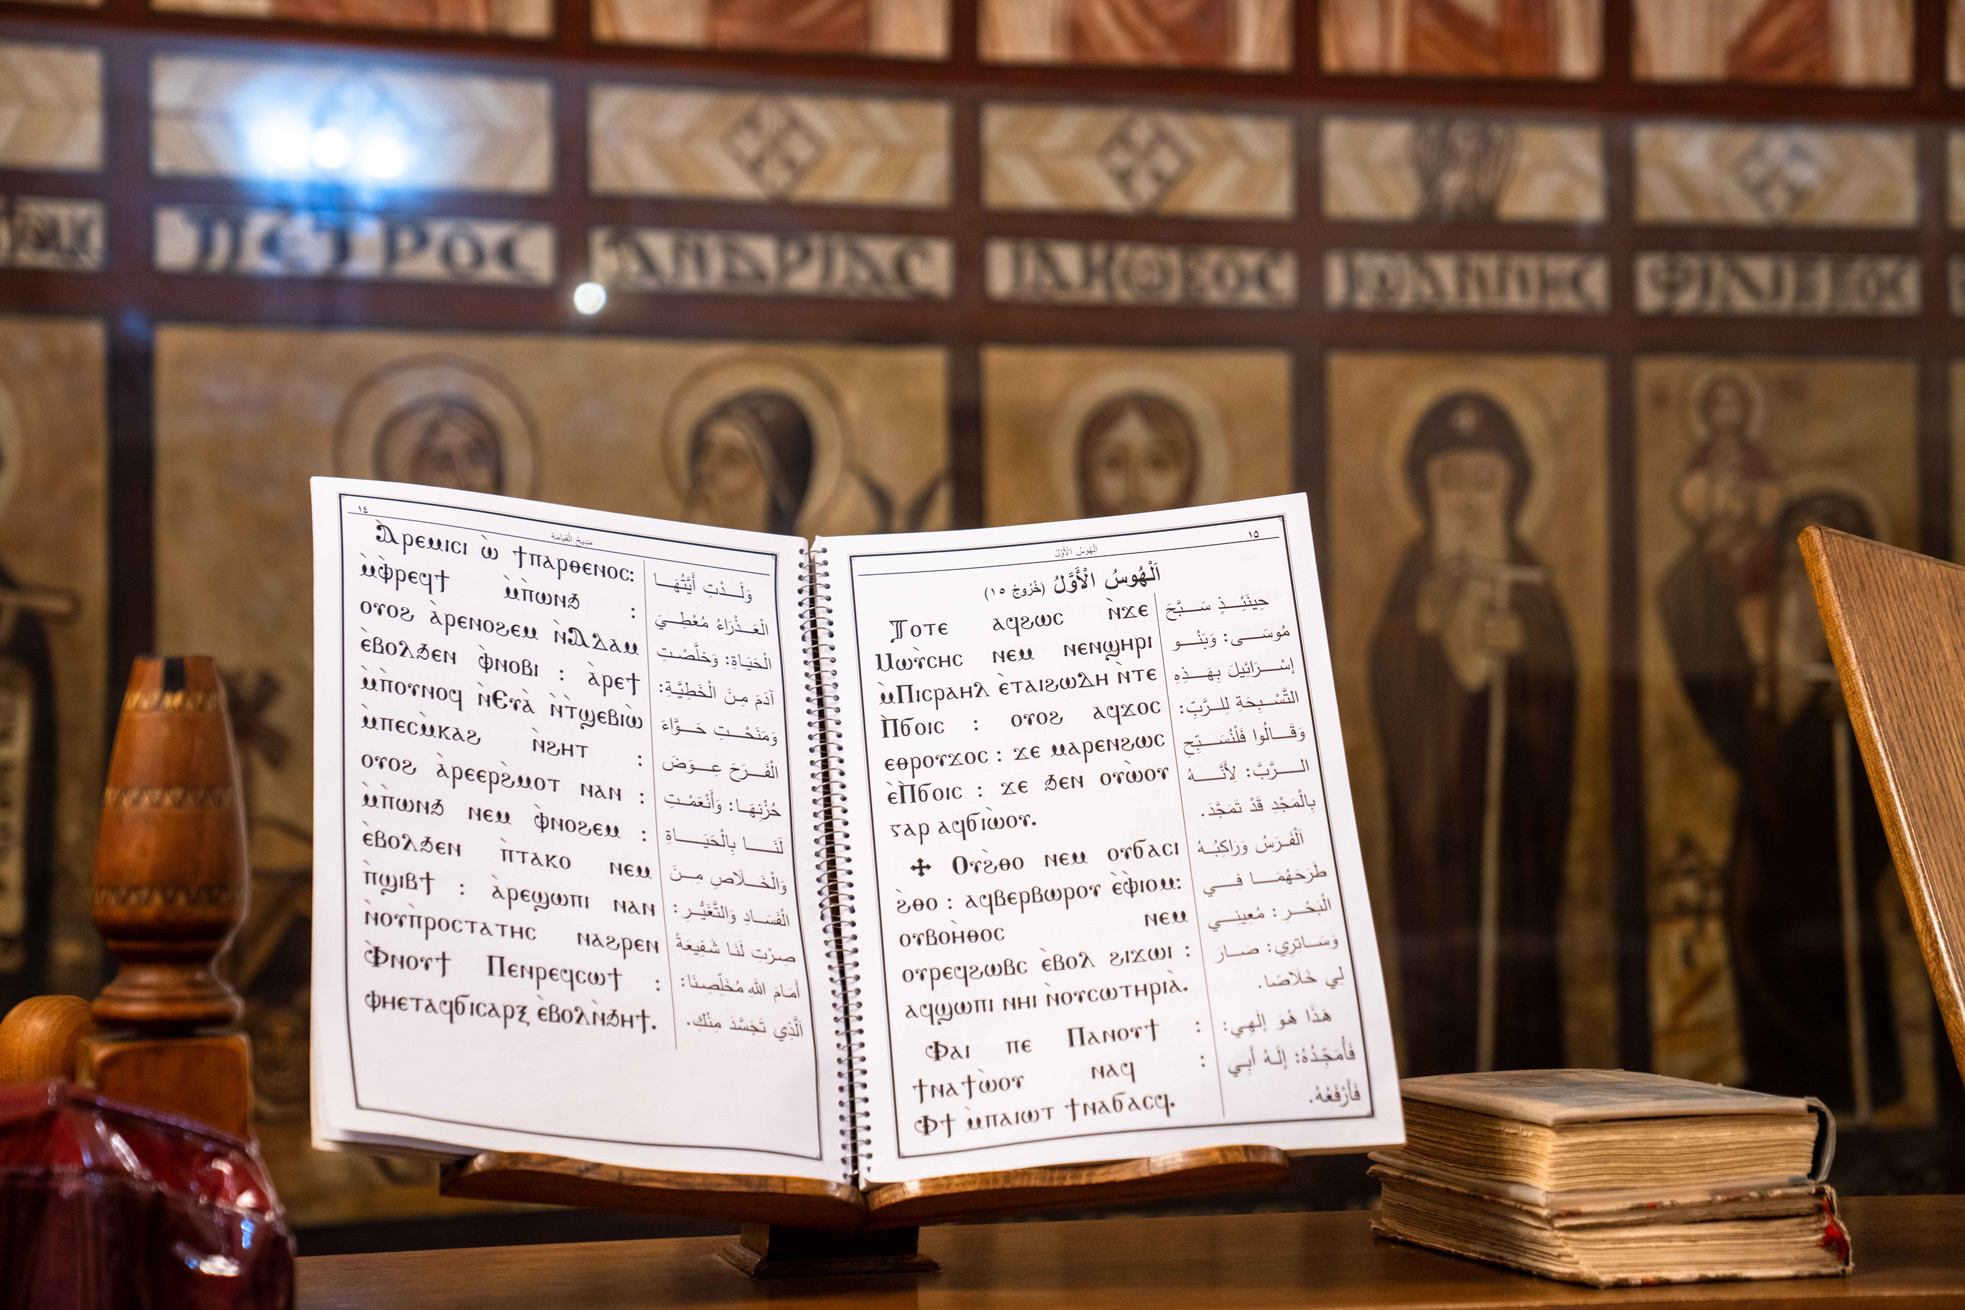 ΠΕΤΡΟC
ΑΝΔΡΙΑC
ΙΑΚⲰΒΟC
ⲒⲰⲀⲚⲚⲎⲤ
ⲪⲒⲖⲒⲠⲠⲞⲤ
١٤
مَدِيحُ الْقِيَامَةِ
Ⲁ̀ⲣⲉⲙⲓⲥⲓ ⲱ̀ ϯⲡⲁⲣⲑⲉⲛⲟⲥ:
ⲙ̀ⲫ̀ⲣⲉϥϯ ⲙ̀ⲡ̀ⲱⲛϧ :
ⲟⲩⲟϩ ⲁ̀ⲣⲉⲛⲟϩⲉⲙ ⲛ̀Ⲁⲇⲁⲙ
ⲉ̀ⲃⲟⲗϧⲉⲛ ⲫ̀ⲛⲟⲃⲓ : ⲁ̀ⲣⲉϯ
ⲙ̀ⲡ̀ⲟⲩⲛⲟϥ ⲛ̀Ⲉⲩⲁ̀ ⲛ̀ⲧ̀ϣⲉⲃⲓⲱ̀
ⲙ̀ⲡⲉⲥⲙ̀ⲕⲁϩ ⲛ̀ϩⲏⲧ :
ⲟⲩⲟϩ ⲁ̀ⲣⲉⲉⲣϩ̀ⲙⲟⲧ ⲛⲁⲛ :
ⲙ̀ⲡ̀ⲱⲛϧ ⲛⲉⲙ ⲫ̀ⲛⲟϩⲉⲙ :
ⲉ̀ⲃⲟⲗϧⲉⲛ ⲡ̀ⲧⲁⲕⲟ ⲛⲉⲙ
ⲡ̀ϣⲓⲃϯ : ⲁ̀ⲣⲉϣⲱⲡⲓ ⲛⲁⲛ
ⲛ̀ⲟⲩⲡ̀ⲣⲟⲥⲧⲁⲧⲏⲥ ⲛⲁϩⲣⲉⲛ
Ⲫ̀ⲛⲟⲩϯ Ⲡⲉⲛⲣⲉϥⲥⲱϯ :
ⲫⲏⲉⲧⲁϥϭⲓⲥⲁⲣⲝ ⲉ̀ⲃⲟⲗⲛ̀ϧⲏϯ.
وَلَـــدْتِ أَيَّتُهَـــا
الْعَـذْرَاءُ مُعْطِـيَ
الْحَيَاةِ: وَخَلَّصْـتِ
آدَمَ مِـنَ الْخَطِيَّةِ:
وَمَنَحْـتِ حَـوَّاءَ
الْفَـــرَحَ عِـــوَضَ
حُزْنِهَـا: وَأَنْعَمْـتِ
لَنَـــا بِالْحَيَـــاةِ
وَالْخَـــلَاصِ مِـــنَ
الْفَسَـادِ وَالتَّغَيُّـرِ:
صِرْتِ لَنَا شَفِيعَةً
أَمَامَ اللهِ مُخَلِّصِنَا:
الَّذِي تَجَسَّدَ مِنْكِ.
١٥
اَلْهُوسُ الْأَوَّلُ
اَلْهُوسُ الْأَوَّلُ (خُرُوجُ ١٥)
Ⲧⲟⲧⲉ ⲁϥϩⲱⲥ ⲛ̀ϫⲉ
Ⲙⲱⲩ̀ⲥⲏⲥ ⲛⲉⲙ ⲛⲉⲛϣⲏⲣⲓ
ⲙ̀Ⲡⲓⲥⲣⲁⲏⲗ ⲉ̀ⲧⲁⲓϩⲱⲇⲏ ⲛ̀ⲧⲉ
Ⲡ̀ϭⲟⲓⲥ : ⲟⲩⲟϩ ⲁϥϫⲟⲥ
ⲉⲑⲣⲟⲩϫⲟⲥ : ϫⲉ ⲙⲁⲣⲉⲛϩⲱⲥ
ⲉ̀Ⲡ̀ϭⲟⲓⲥ : ϫⲉ ϧⲉⲛ ⲟⲩⲱ̀ⲟⲩ
ⲅⲁⲣ ⲁϥϭⲓⲱ̀ⲟⲩ.
✣ Ⲟⲩϩ̀ⲑⲟ ⲛⲉⲙ ⲟⲩϭⲁⲥⲓ
ϩ̀ⲑⲟ : ⲁϥⲃⲉⲣⲃⲱⲣⲟⲩ ⲉ̀ⲫ̀ⲓⲟⲙ:
ⲟⲩⲃⲟⲏ̀ⲑⲟⲥ ⲛⲉⲙ
ⲟⲩⲣⲉϥϩⲱⲃⲥ ⲉ̀ⲃⲟⲗ ϩⲓϫⲱⲓ :
ⲁϥϣⲱⲡⲓ ⲛⲏⲓ ⲛ̀ⲟⲩⲥⲱⲧⲏⲣⲓⲁ̀.
Ⲫⲁⲓ ⲡⲉ Ⲡⲁⲛⲟⲩϯ :
ϯⲛⲁϯⲱ̀ⲟⲩ ⲛⲁϥ :
Ⲫϯ ⲙ̀ⲡⲁⲓⲱⲧ ϯⲛⲁϭⲁⲥϥ.
حِينَئِـــذٍ سَـــبَّحَ
مُوسَـى: وَبَنُـو
إِسْـرَائِيلَ بِهَـذِهِ
التَّسْـبِحَةِ لِلـرَّبِّ:
وَقَـالُوا فَلْنُسَـبِّحِ
الـــرَّبَّ: لِأَنَّـــهُ
بِالْمَجْدِ قَدْ تَمَجَّدَ.
اَلْفَـرَسُ وَرَاكِبُـهُ
طَرَحَهُمَـــا فِـــي
الْبَحْـرِ: مُعِينِـي
وَسَـاتِرِي: صَـارَ
لِي خَلَاصًا.
هَـذَا هُوَ إِلَهِي:
فَأُمَجِّدُهُ: إِلَـهُ أَبِي
فَأَرْفَعُهُ.